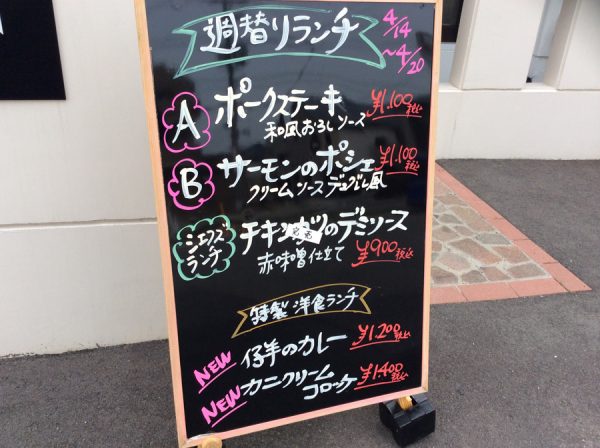 週替りランチ
4/14
~4/20
A ポークステーキ ¥1.100税込
和風おろしソース
B サーモンのポシェ ¥1.100税込
クリームソースデュグレレ風
シェフズ
ランチ
チキンもものデミソース
赤味噌仕立て ¥900税込
特製 洋食ランチ
NEW 仔羊のカレー ¥1.200税込
NEW カニクリーム
コロッケ ¥1.400税込